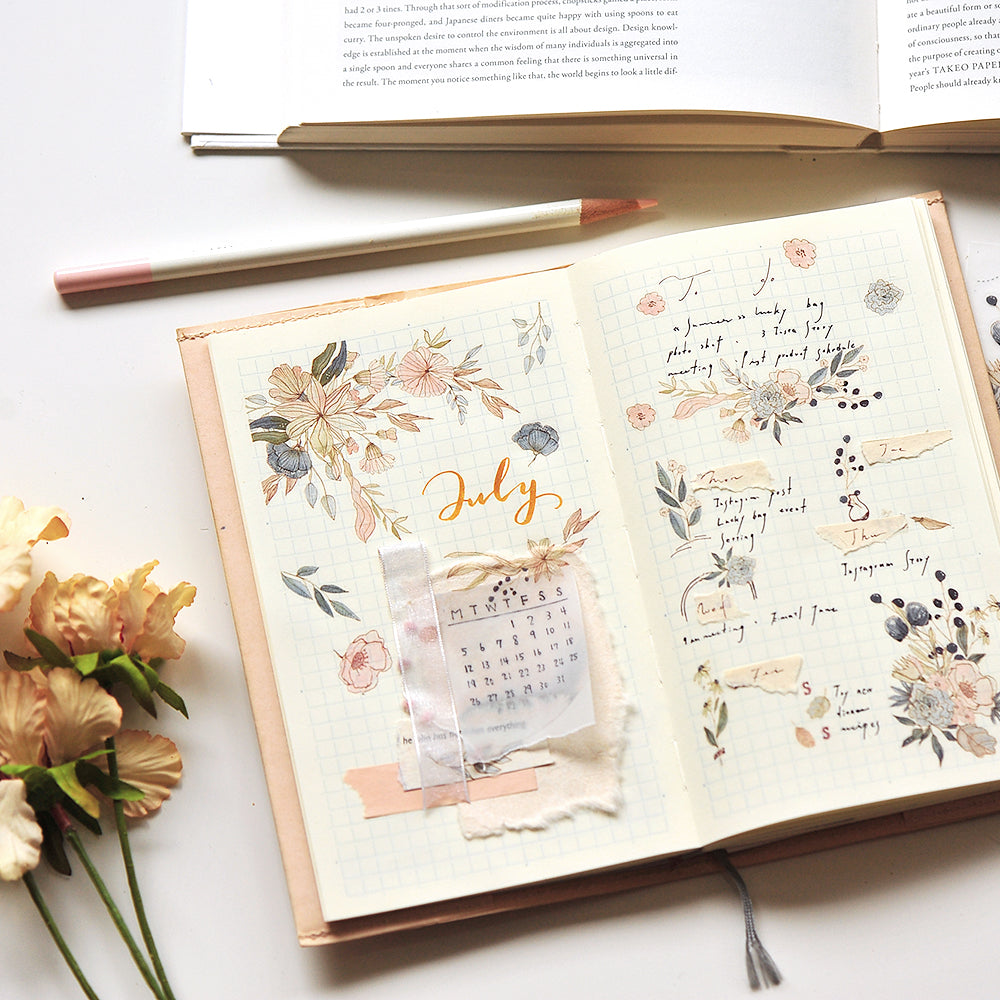 had 2 or 3 tines. Through that sort of modification process, chopsticks gained a
became four-pronged, and Japanese diners became quite happy with using spoons to eat
curry. The unspoken desire to control the environment is all about design. Design knowl-
edge is established at the moment when the wisdom of many individuals is aggregated into
a single spoon and everyone shares a common feeling that there is something universal in
the result. The moment you notice something like that, the world begins to look a little dif-
ate a beautiful form or
ordinary people already a
of consciousness, so that
the purpose of creating
year's TAKEO PAPE
People should already
July
M T W T F S S
1 2 3 4
5 6 7 8 9 10 11
12 13 14 15 16 17 18
19 20 21 22 23 24 25
26 27 28 29 30 31
everything
To do
a Summer lucky bag
photo shot . 3 Story
meeting . Post product schedule
Mon
Instagram post
Lucky bag event
Setting
Tue
Thu
Instagram Story
Wed
meeting . Email
S
S
Try new
dinner
recipes